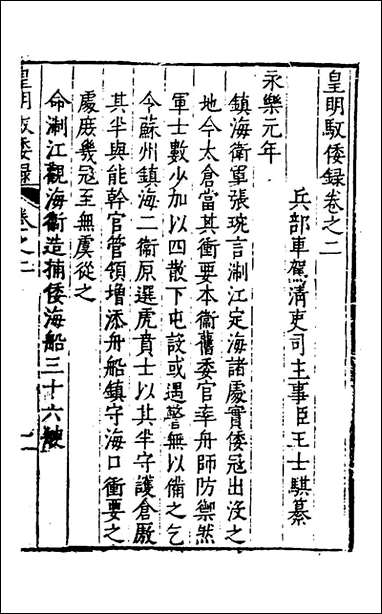 皇明馭倭錄卷之二
兵部車駕清吏司主事臣王士騏纂
永樂元年
鎮海衛軍張琬言浙江定海諸處實倭寇出沒之
地今太倉當其衝要本衞舊委官率舟師防禦然
軍士數少加以四散下屯設或遇警無以備之乞
今蘇州鎮海二衞原選虎賁士以其半守護倉厫
其半與能幹官管領增添舟船鎮守海口衝要之
處庶幾寇至無虞從之
命浙江觀海衞造捕倭海船三十六艘
皇明馭倭錄 卷之二 一